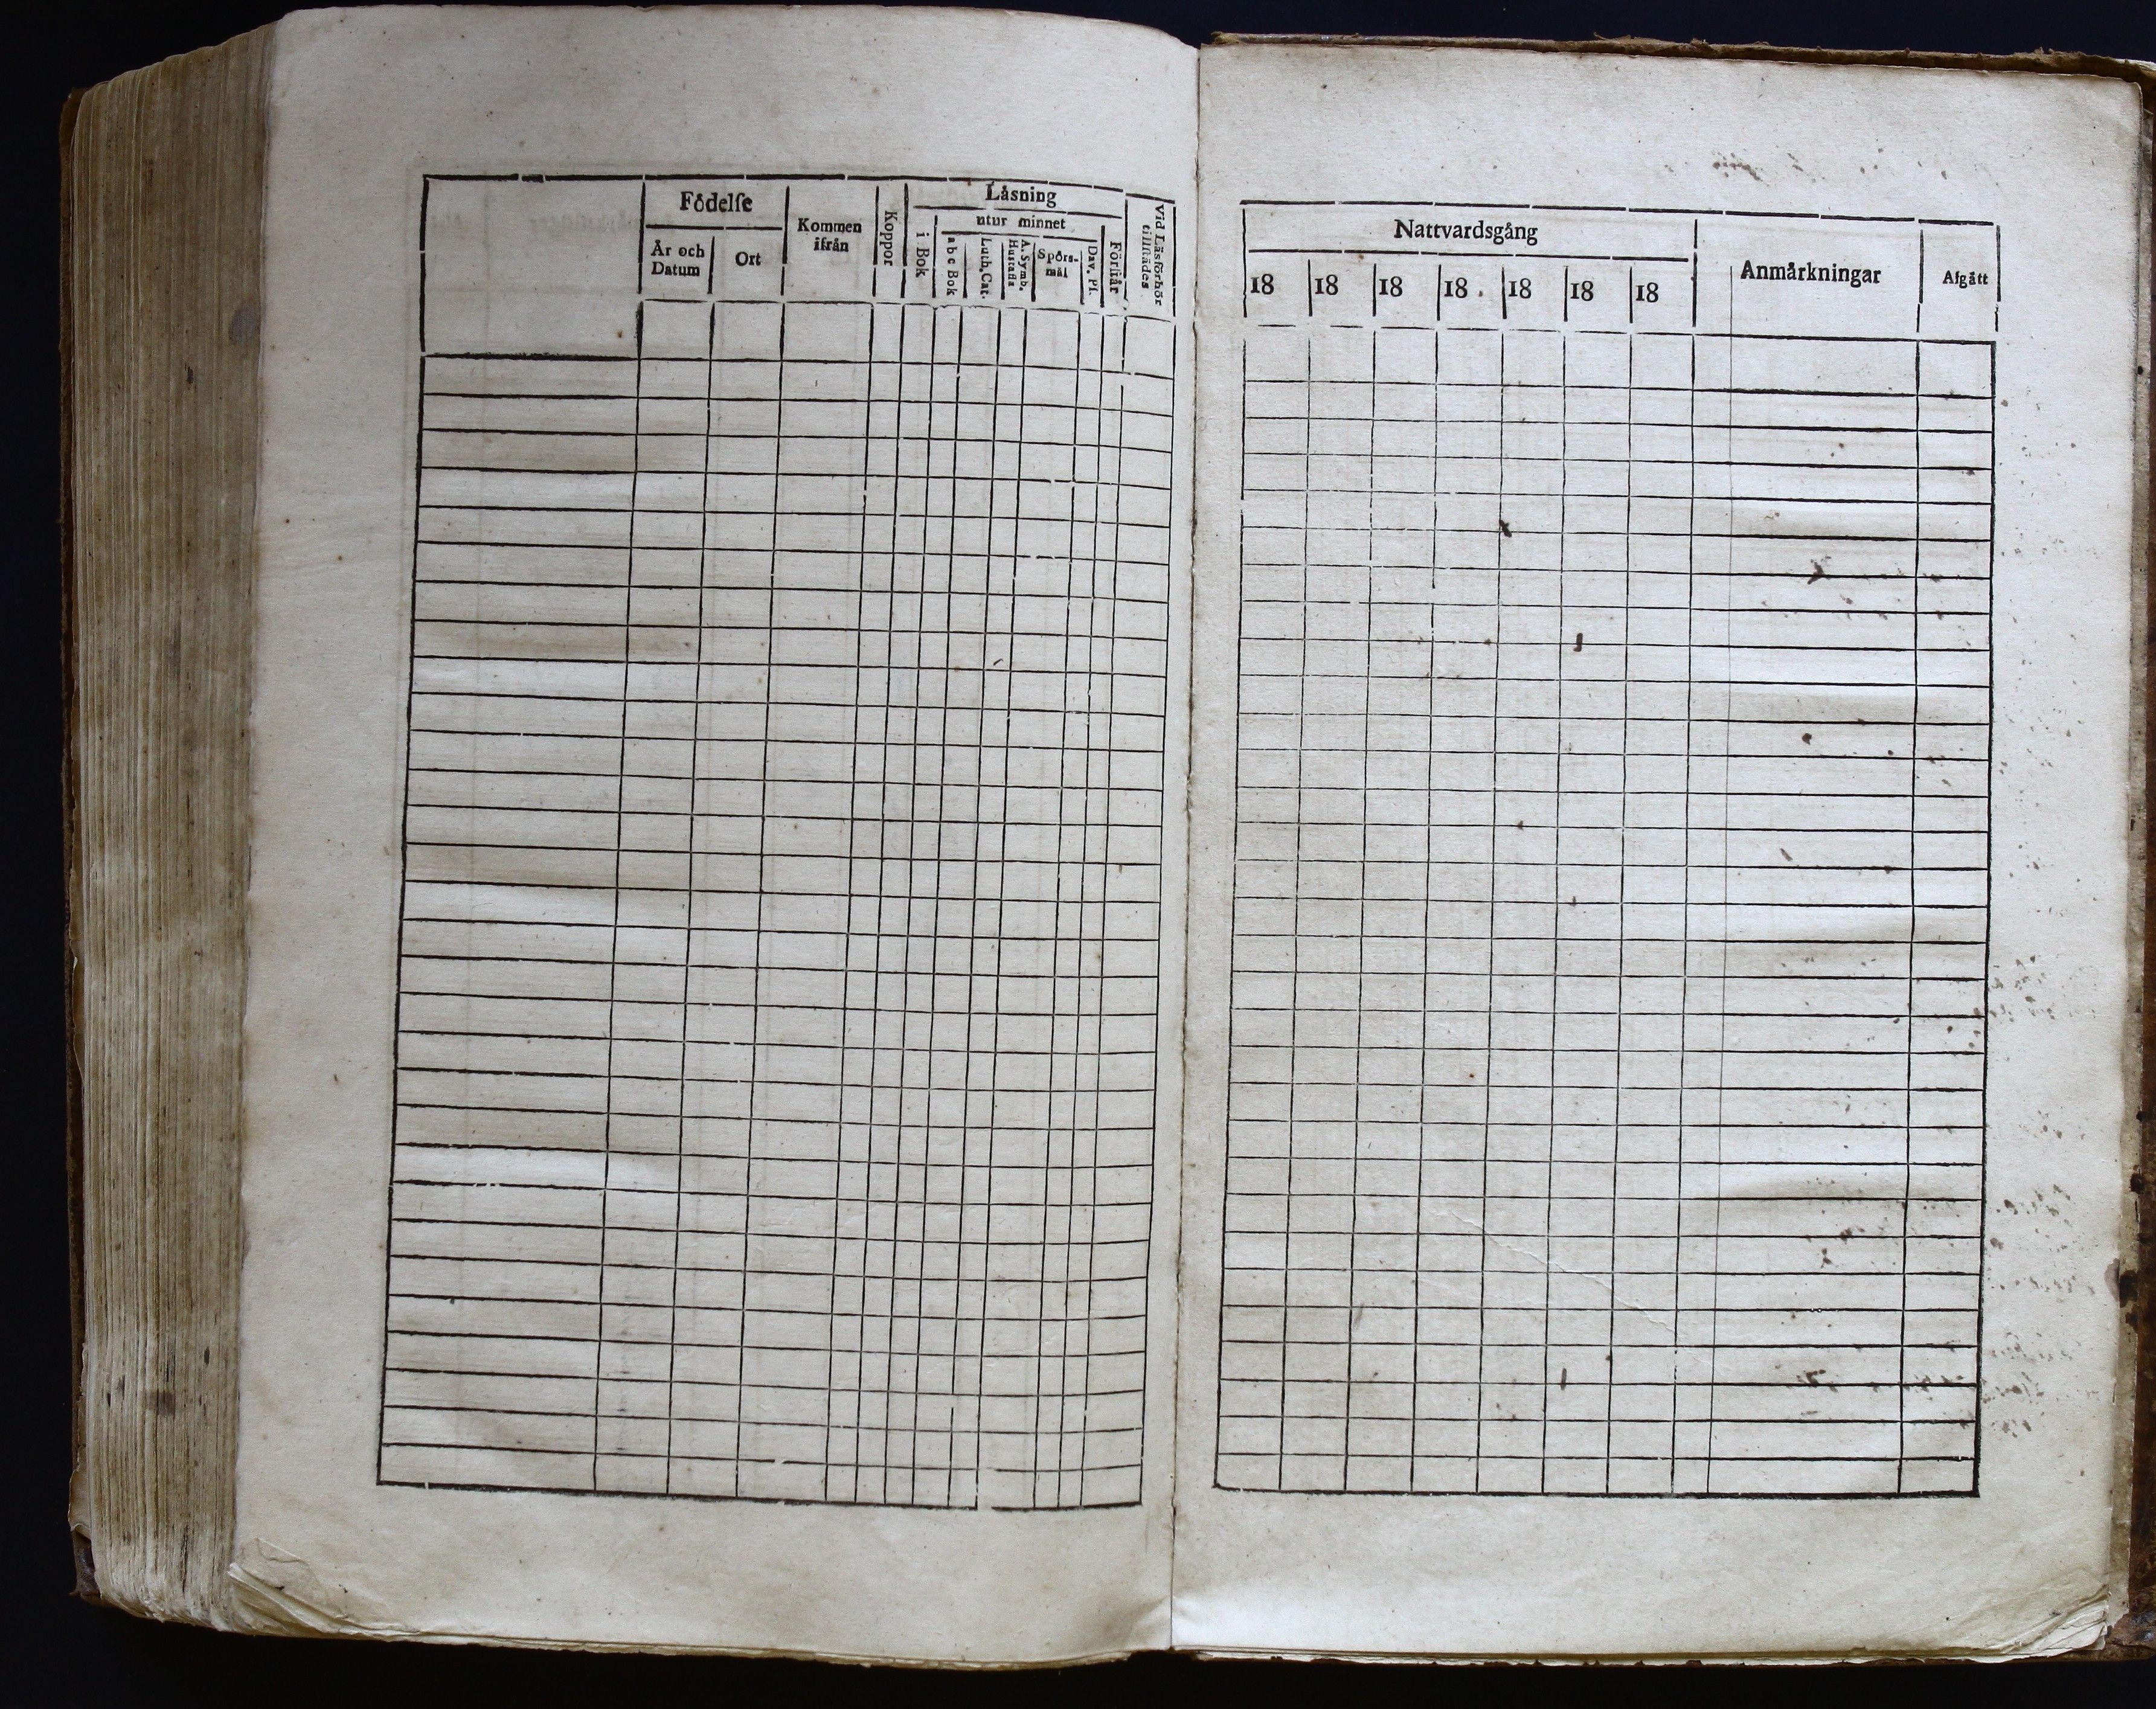 Födelſe
År och
Datum
Ort
Kommen
ifrån
Koppor
Låsning
i Bok
utur minnet
a b c Bok
Luth. Cat.
A. Symb.
Huſtafla
Spörs-
mål
Dav. Pſ.
Förſtår
Vid Läsförhör
tillſtädes
Nattvardsgång
18 18 18 18 18 18 18
Anmårkningar
Afgått